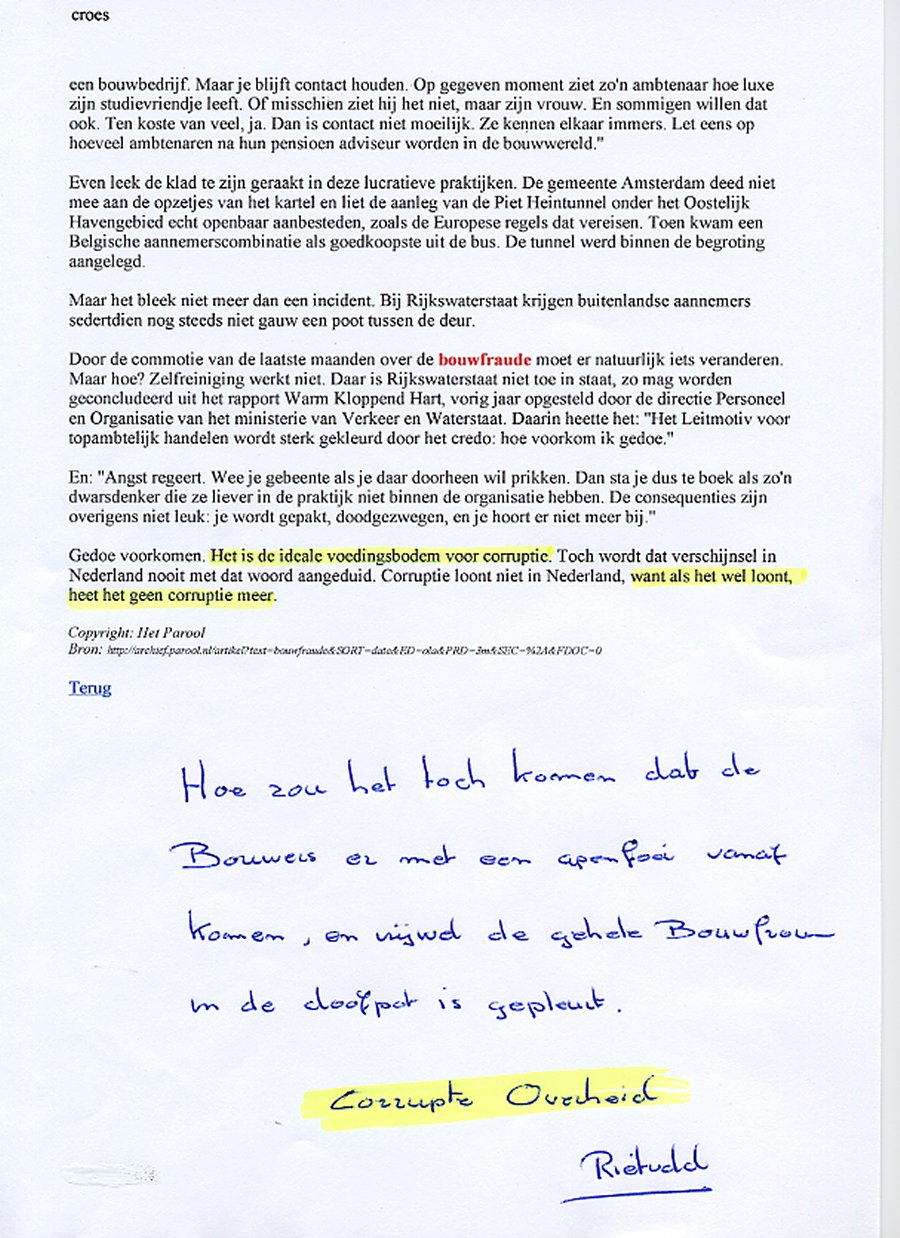 croes
een bouwbedrijf. Maar je blijft contact houden. Op gegeven moment ziet zo'n ambtenaar hoe luxe
zijn studievriendje leeft. Of misschien ziet hij het niet, maar zijn vrouw. En sommigen willen dat
ook. Ten koste van veel, ja. Dan is contact niet moeilijk. Ze kennen elkaar immers. Let eens op
hoeveel ambtenaren na hun pensioen adviseur worden in de bouwwereld."
Even leek de klad te zijn geraakt in deze lucratieve praktijken. De gemeente Amsterdam deed niet
mee aan de opzetjes van het kartel en liet de aanleg van de Piet Heintunnel onder het Oostelijk
Havengebied echt openbaar aanbesteden, zoals de Europese regels dat vereisen. Toen kwam een
Belgische aannemerscombinatie als goedkoopste uit de bus. De tunnel werd binnen de begroting
aangelegd.
Maar het bleek niet meer dan een incident. Bij Rijkswaterstaat krijgen buitenlandse aannemers
sedertdien nog steeds niet gauw een poot tussen de deur.
Door de commotie van de laatste maanden over de bouwfraude moet er natuurlijk iets veranderen.
Maar hoe? Zelfreiniging werkt niet. Daar is Rijkswaterstaat niet toe in staat, zo mag worden
geconcludeerd uit het rapport Warm Kloppend Hart, vorig jaar opgesteld door de directie Personeel
en Organisatie van het ministerie van Verkeer en Waterstaat. Daarin heette het: "Het Leitmotiv voor
topambtelijk handelen wordt sterk gekleurd door het credo: hoe voorkom ik gedoe."
En: "Angst regeert. Wee je gebeente als je daar doorheen wil prikken. Dan sta je dus te boek als zo'n
dwarsdenker die ze liever in de praktijk niet binnen de organisatie hebben. De consequenties zijn
overigens niet leuk: je wordt gepakt, doodgezwegen, en je hoort er niet meer bij."
Gedoe voorkomen. Het is de ideale voedingsbodem voor corruptie. Toch wordt dat verschijnsel in
Nederland nooit met dat woord aangeduid. Corruptie loont niet in Nederland, want als het wel loont,
heet het geen corruptie meer.
Copyright: Het Parool
Bron: http://archief.parool.nl/artikel?text=bouwfraude&SORT=date&ED=ola&PRD=3m&SEC=%2A&FDOC=0
Terug
Hoe zou het toch komen dat de
Bouwers er met een apenfooi vanaf
komen, en vrijwel de gehele Bouwfrau
in de doofpot is gepleurt.
Corrupte Overheid